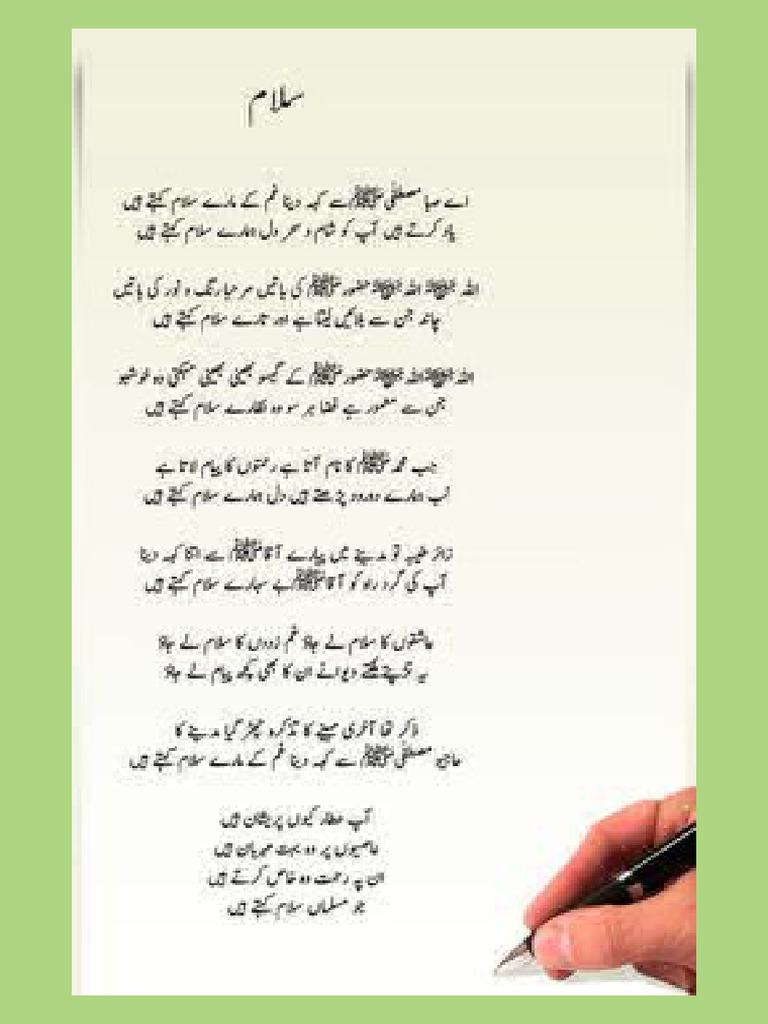 سلام
اے صبا مصطفیٰ ﷺ سے کہہ دینا غم کے مارے سلام کہتے ہیں
یاد کرتے ہیں آپ کو شام و سحر دل ہمارے سلام کہتے ہیں
اللہ ﷻ اللہ ﷻ حضور ﷺ کی باتیں مرحبا رنگ و نور کی باتیں
چاند جن سے بلائیں لیتا ہے اور تارے سلام کہتے ہیں
اللہ ﷻ اللہ ﷻ حضور ﷺ کے گیسو بھینی بھینی مہکتی وہ خوشبو
جن سے معمور ہے فضا ہر سو وہ نظارے سلام کہتے ہیں
جب محمد ﷺ کا نام آتا ہے رحمتوں کا پیام لاتا ہے
لب ہمارے درود پڑھتے ہیں دل ہمارے سلام کہتے ہیں
زائر طیبہ تو مدینے میں پیارے آقا ﷺ سے اتنا کہہ دینا
آپ کی گرد راہ کو آقا ﷺ بے سہارے سلام کہتے ہیں
عاشقوں کا سلام لے جاؤ غم زدوں کا سلام لے جاؤ
یہ تڑپتے دیوانے ان کا بھی کچھ پیام لے جاؤ
ذکر تھا آخری مہینے کا تذکرہ چھڑ گیا مدینے کا
حاجیو مصطفیٰ ﷺ سے کہہ دینا غم کے مارے سلام کہتے ہیں
آپ عطار کیوں پریشان ہیں
عاصیوں پر وہ بہت مہربان ہیں
ان پہ رحمت وہ خاص کرتے ہیں
جو مسلماں سلام کہتے ہیں